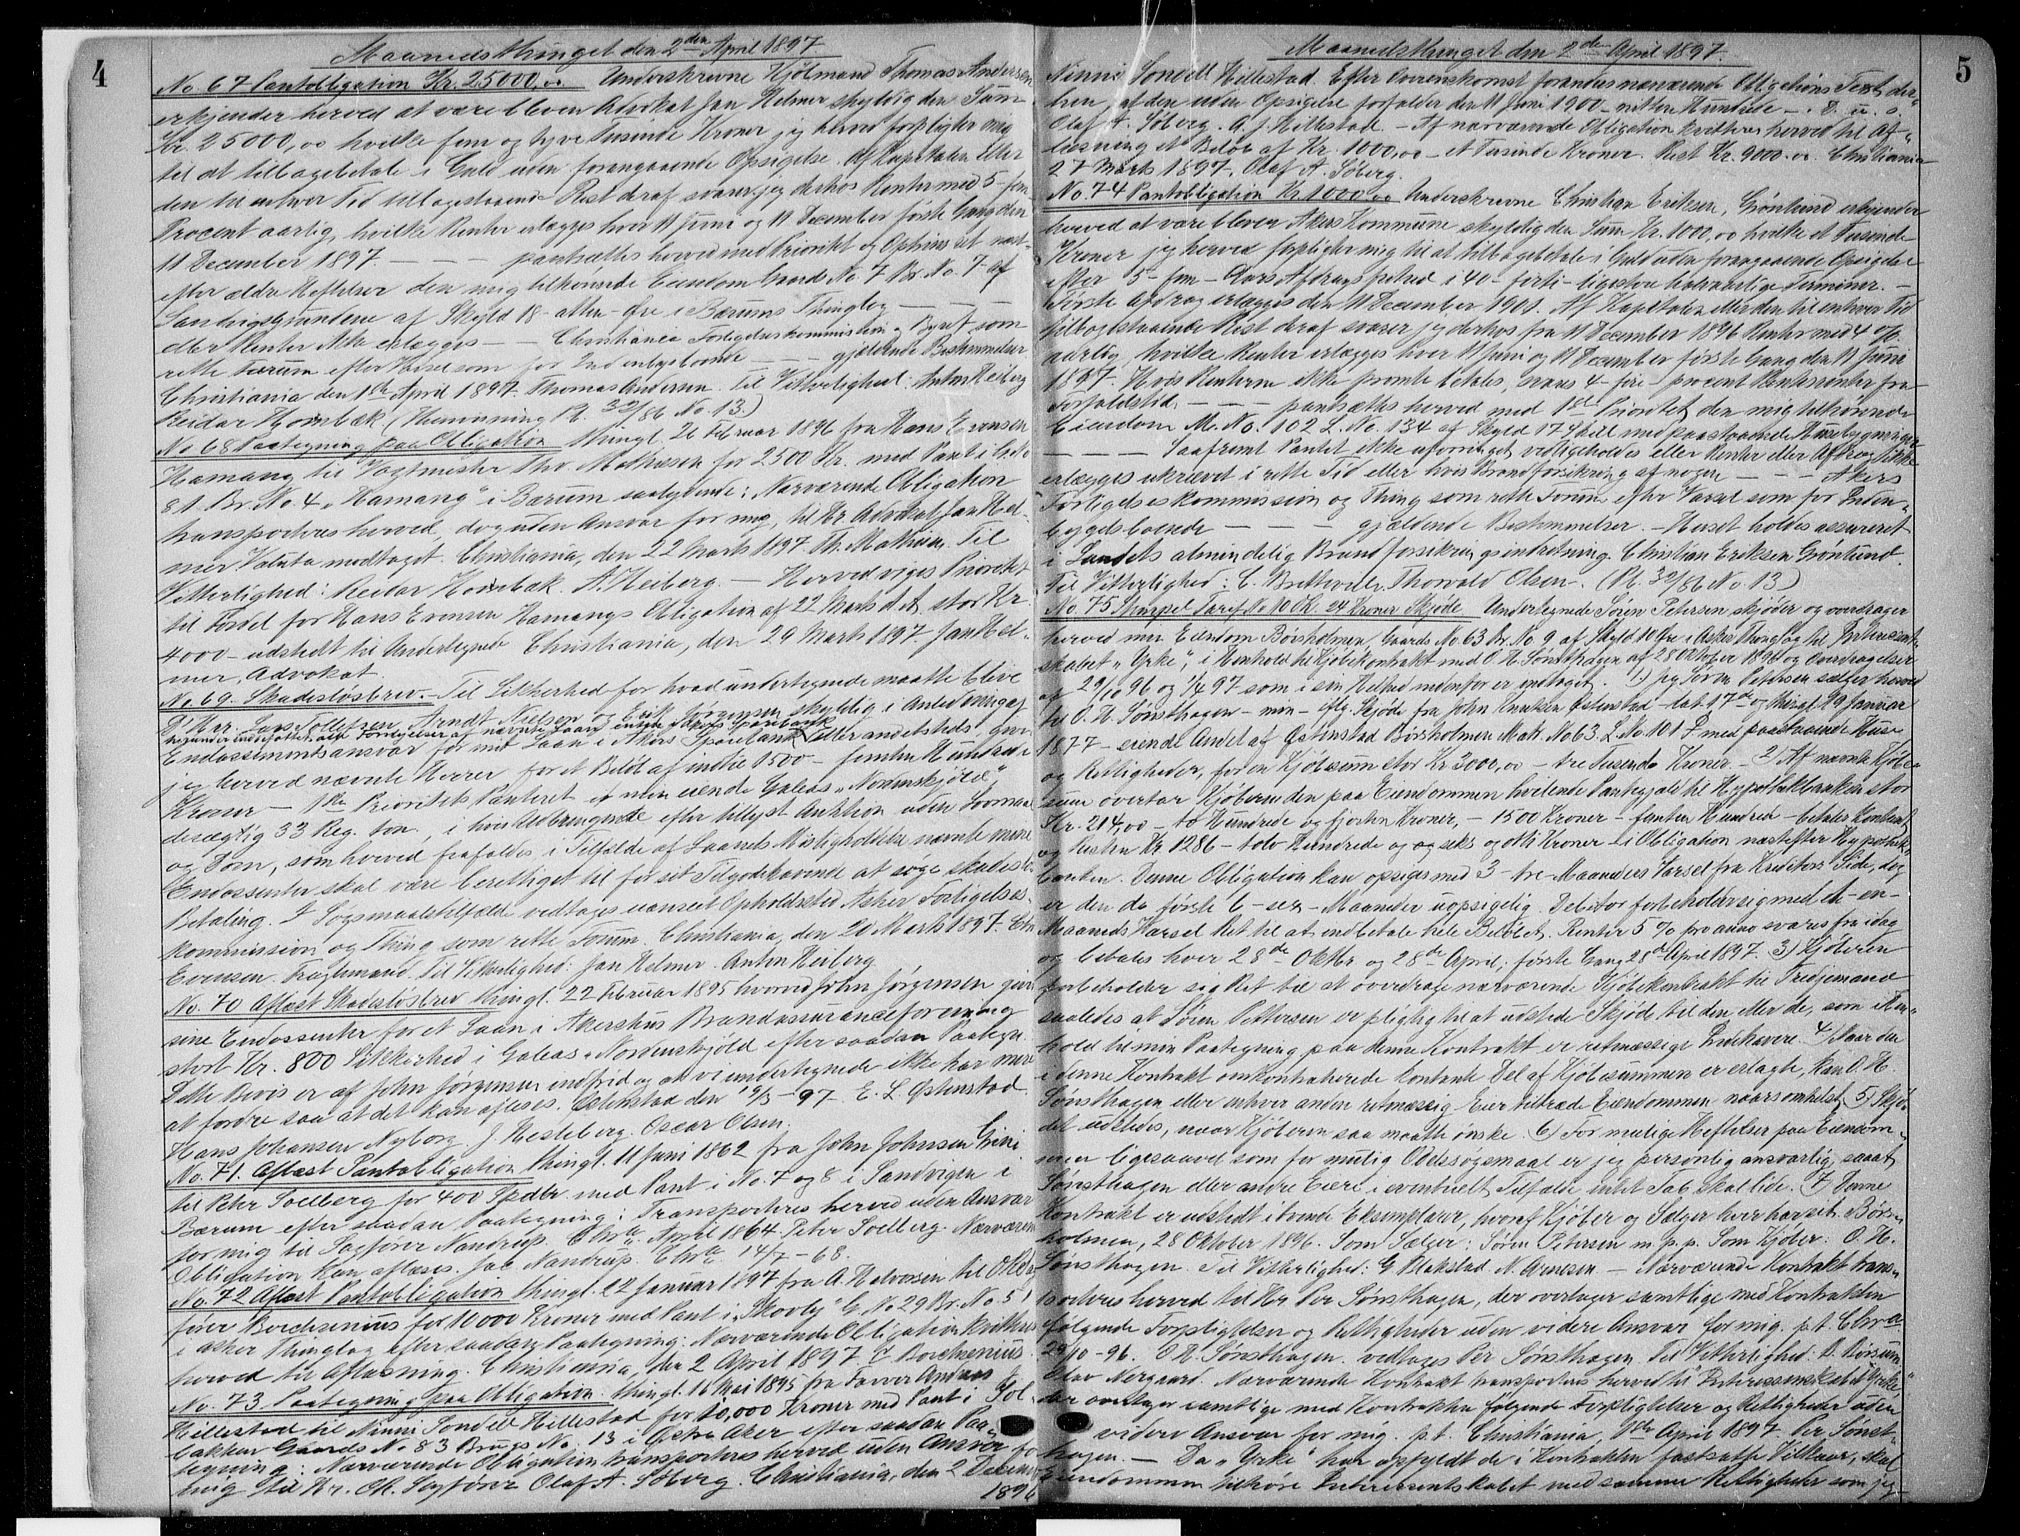 4
Maanedsthinget den 2den April 1897
No. 67 Pantobligation Kr. 25000,00 Underskrevne Kjøbmand Thomas Andersen
erkjender herved at være bleven Advokat Jan Helmer skyldig den Sum
Kr. 25000,00 hvilke fem og tyve Tusinde Kroner jeg herved forpligter mig
til at tilbagebetale i Guld uden forangaaende Opsigelse. Af Kapitalen eller
den til enhver Tid tilbagestaaende Rest deraf svarer jeg derhos Renter med 5 - fem
Procent aarlig, hvilke Renter erlægges hver 11 Juni og 11 December første Gang den
11 December 1897. — — — pantsættes herved med Prioritet og Optrins ret næst
efter ældre Heftelser den mig tilhørende Eiendom Gaards No. 7 Br. No. 7 af
Sandvigsgrundene af Skyld 18 - atten - Øre i Bærums Thinglag — — —
eller Renter ikke erlægges — — Christiania Forligelseskommission og Byret som
rette Værum efter Varsel som for Indenbysboende — — gjældende Bestemmelser
Christiania den 1ste April 1897. Thomas Andersen. Til Vitterlighed: Anton Heiberg
Reidar Hornbæk (Hemning Rl. 32/86 No. 13.)
No. 68 Paategning paa Obligation thingl. 26 Februar 1896 fra Hans Evensen
Hamang til Vagtmester Tho. Mathisen for 2500 Kr. med Pant i G. No.
81 Br. No. 4 „Hamang" i Bærum saalydende: Nærværende Obligation
transporteres herved, dog uden Ansvar for mig, til Hr. Advokat Jan Hel-
mer Valuta modtaget. Christiania, den 22 Marts 1897. Th. Mathisen. Til
Vitterlighed: Reidar Hornbæk. A. Heiberg. — Herved viges Prioritet
til Fordel for Hans Evensen Hamangs Obligation af 22 Marts d. A. stor Kr.
4000 - udstedt til Undertegnede Christiania, den 29 Marts 1897 Jan Hel-
mer, Advokat.
No. 69. Skadesløsbrev. Til Sikkerhed for hvad undertegnede maatte blive
D'Hrr. Lars Tollefsen, Arndt Nielsen og Erik Jørgensen skyldig i Anledning af
herunder indbefattet alle Fornyelser af nævnte Laan enten i Akers Sparebank
Endossementsansvar for mit Laan i Akers Sparebank eller andetsteds giver
jeg herved nævnte Herrer for et Beløb af indtil 1500 - femten Hundrede
Kroner — 1ste Prioritets Panteret i min eiende Galeas „Nordenskjold"
drægtig 33 Reg. ton., i hvis Udbringende efter tillyst Auktion uden Lovmaal
og Dom, som herved frafaldes, i Tilfælde af Laanets Misligholdelse nævnte mine
Endossenter skal være berettiget til for sit Tilgodehavende at søge skadesløs
Betaling. I Søgsmaalstilfælde vedtages uanseet Opholdssted Asker Forligelses-
kommission og Thing som rette Forum. Christiania, den 20 Marts 1897. Chr
Evensen. Fragtemand. Til Vitterlighed: Jan Helmer. Anton Heiberg.
No. 70 Aflæst Skadesløsbrev thingl. 22 Februar 1895 hvorved John Jørgensen giver
sine Endossenter for et Laan i Akershus Brandassuranceforening
stort Kr. 800 Sikkerhed i Galeas „Nordenskjold efter saadan Paategn.
Dette Bevis er af John Jørgensen indfriet og at vi undertegnede ikke har mere
at fordre saa at det kan aflæses. Østenstad den 16/3 - 97. E. L. Østenstad.
Hans Johansen Nyborg. J. Hesleberg. Oscar Olsen.
No. 71. Aflæst Pantobligation thingl. 11 Juni 1862 fra John Johnsen Grini
til Peter Solberg for 400 Spdlr. med Pant i No. 7 og 8 i Sandvigen i
Bærum efter saadan Paategning: Transporteres herved uden Ansvar
for mig til Sagfører Nandrup. Chra. April 1864. Peter Solberg. Nærværende
Obligation kan aflæses. Jac. Nandrup. Chra. 14/7 - 68.
No. 72 Aflæst Pantobligation thingl. 22 Januar 1897 fra A. Halvorsen til O.R. Sag-
fører Borchsenius for 10000 Kroner med Pant i „Skovly" G. No. 29 Br. No. 51
i Asker Thinglag efter saadan Paategning: Nærværende Obligation kvitteres
herved til Aflæsning. Christiania, den 2 April 1897. Borchsenius.
No. 73 Paategning paa Obligation: thingl. 16 Mai 1895 fra Farver Anders
Hillestad til Ninni Sondell Hillestad for 10,000 Kroner med Pant i Sol-
bakken Gaards No. 83 Brugs No. 13 i Østre Aker efter saadan Paa-
tegning: Nærværende Obligation transporteres herved uden Ansvar for
mig til Hr. O.R. Sagfører Olaf A. Søberg. Christiania, den 2 Decem-
1896
5
Maanedsthinget den 2den April 1897.
Ninni Sondell Hillestad. Efter Overenskomst forandres nærværende Obligations Text der-
hen, af den uden Opsigelse forfalder den 11 Juni 1900 - nitten Hundrede — . D. u. s.
Olaf A. Søberg. A. J. Hillestad. — Af nærværende Obligation kvitteres herved til Af-
læsning et Beløb af Kr. 1000,00 - et Tusinde Kroner. Rest Kr. 9000.00. Christiania
27 Marts 1897. Olaf A. Søberg.
No. 74 Pantobligation Kr. 1000.00 Underskrevne Christian Eriksen, Grønlund erkjender
herved at være bleven Akers Kommune skyldig den Sum Kr. 1000,00 hvilke et Tusende
Kroner jeg herved forpligter mig til at tilbagebetale i Guld uden forangaaende Opsigelse
efter 5 - fem - Aars Afdragsfrihed i 40 - forti - ligestore halvaarlige Terminer. —
Første Afdrag erlægges den 11 December 1901. Af Kapitalen eller den til enhver Tid
tilbagestaaende Rest deraf svarer jeg derhos fra 11 December 1896 Renter med 4 o/o
aarlig, hvilke Renter erlægges hver 11 Juni og 11 December første Gang den 11 Juni
1897. Hvis Renterne ikke promte betales, svares 4 - fire - procent Rentesrenter fra
Forfaldstid. — — — pantsættes herved med 1ste Prioritet den mig tilhørende
Eiendom M. No. 102 L. No. 134 af Skyld 17 Skill. med paastaaende Husebygninger
— — — Saafremt Pantet ikke uforringet vedligeholdes eller Renter eller Afdrag ikke
erlægges ukrævet i rette Tid eller hvis Brandforsikring af nogen — — — Akers
Forligelseskommission og Thing som rette Forum efter Varsel som for Inden-
bygdsboende — — — gjældende Bestemmelser. — Huset holdes assureret
i Landets almindelig Brandforsikringsindretning. Christian Eriksen Grønlund.
Til Vitterlighed: C. Bretteville. Thorvald Olsen. (Rl. 32/86 No. 13)
No. 75 Stempel Tarif No. 10 Ch. 24 Kroner Skjøde. Undertegnede Søren Petersen skjøder og overdrager
herved min Eiendom Børsholmen, Gaards No. 63 Br. No. 9 af Skyld 10 Øre i Asker Thinglag til Interessent-
skabet „Yrke", i Henhold til Kjøbekontrakt med O. H. Sønsthagen af 28 Oktober 1896 og Overdragelser
af 29/10 96 og 1/4 97 som i sin Helhed nedenfor er indtaget. 1) Jeg Søren Petersen sælger herved
til O. H. Sønsthagen - min - iflg. Skjøde fra John Knutsen Østenstad - dat. 17de og thingl. 19 Januar
1877 - eiende Andel af Østenstad Børsholmen Mat. No. 63. L. No. 101 F med paastaaende Huse
og Rettigheder, for en Kjøbesum stor Kr. 3000,00 - tre Tusende Kroner. - 2) Af nævnte Kjøbe-
sum overtar Kjøberne den paa Eiendommen hvilende Pantegjæld til Hypothekbanken stor
Kr. 214,00 - to Hundrede og fjorten Kroner, - 1500 Kroner - femten Hundrede - betales kontant
og Resten Kr. 1286 - tolv Hundrede og og seks og otti Kroner - i Obligation næstefter Hypothek-
banken. Denne Obligation kan opsiges med 3 - tre - Maaneders Varsel fra Kreditors Side, dog
er den de første 6 - sex - Maaneder uopsigelig. Debitor forbeholder sig med et - en -
Maaneds Varsel Ret til at indbetale hele Beløbet. Renter 5 % pro anno svares fra idag
og betales hver 28de Oktbr og 28de April; første Gang 28de April 1897. 3) Kjøberen
forbeholder sig Ret til at overdrage nærværende Kjøbekontrakt til Tredjemand
saaledes at Søren Pettersen er pligtig til at udstede Skjøde til den eller de, som i Hen-
hold til min Paategning paa denne Kontrakt er retmæssige Indehavere. 4) Naar den
i denne Kontrakt omkontraherede kontante Del af Kjøbesummen er erlagt, kan O. H.
Sønsthagen eller enhver anden retmæssig Eier tiltræde Eiendommen naarsomhelst. 5) Skjø-
det udstedes, naar Kjøberen saa maatte ønske. 6) For mulige Heftelser paa Eiendom-
men ligesaavel som for mulig Odelssøgsmaal er jeg personlig ansvarlig, saa at
Sønsthagen eller andre Eiere i eventuelt Tilfælde intet Tab skal lide. 7) Denne
Kontrakt er udstedt i tvende Eksemplarer, hvoraf Kjøber og Sælger hver har set. Børs-
holmen, 28 Oktober 1896. Som Sælger: Søren Petersen m. p. p. Som Kjøber: O. H.
Sønsthagen. Til Vitterlighed: G. Blakstad. N. Arnesen — Nærværende Kontrakt trans-
porteres herved til Hr. Per Sønsthagen, der overtager samtlige med Kontrakten
følgende Forpligtelser og Rettigheder uden videre Ansvar for mig. p.t. Chra.
29/10 - 96. O. H. Sønsthagen. vedtages Per Sønsthagen. Til Vitterlighed: B. Børsum
Olav Nergaard. Nærværende Kontrakt transporteres herved til Interessentskabet „Yrke"
der overtager samtlige med Kontrakten følgende Forpligtelser og Rettigheder uden
videre Ansvar for mig. p.t. Christiania, 1ste April 1897. Per Sønst-
hagen. — Da „Yrke" har opfyldt de i Kontrakten fastsatte Vilkaar, skal
Eiendommen tilhøre Interessentskabet med samme Rettigheder som jeg